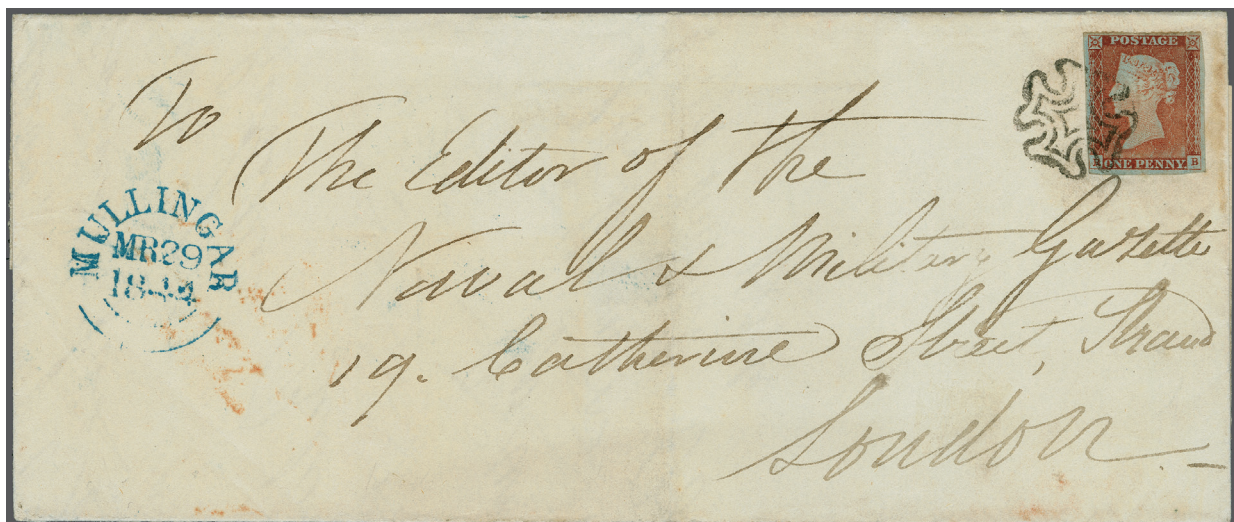 POSTAGE
ONE PENNY
B
To
The Editor of the
Naval & Military Gazette
19. Catherine Street, Strand
London
MULLINGAR
MR29